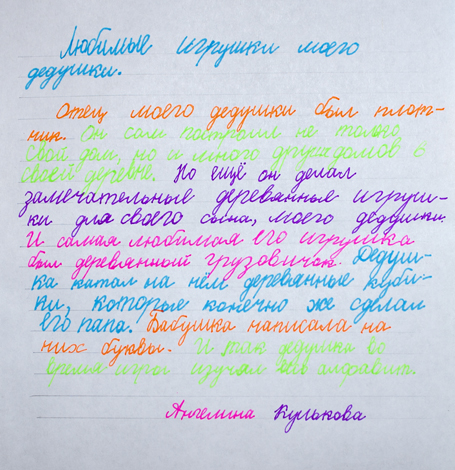 Любимые игрушки моего
дедушки.
Отец моего дедушки был плот-
ник. Он сам построил не только
свой дом, но и много других домов в
своей деревне. Но ещё он делал
замечательные деревянные игруш-
ки для своего сына, моего дедушки.
И самая любимая его игрушка
был деревянный грузовичок. Дедуш-
ка катал на нём деревянные куби-
ки, которые конечно же сделал
его папа. Бабушка написала на
них буквы. И так дедушка во
время игры изучал алфавит.
Ангелина Кулькова